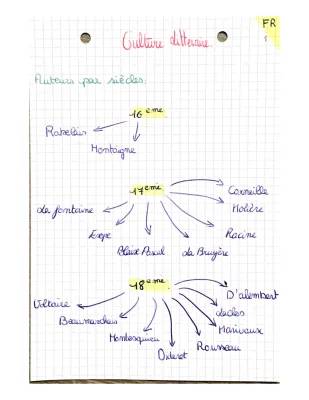 FR
Culture littéraire
Auteurs par siècles:
16 eme
Rabelais
Montaigne
17 eme
Corneille
Molière
la fontaine
Racine
Esope
Blaise Pascal
La Bruyère
18 eme
D'alembert
Voltaire
Beaumarchais
Marivaux
Montesquieu
Rousseau
Diderot